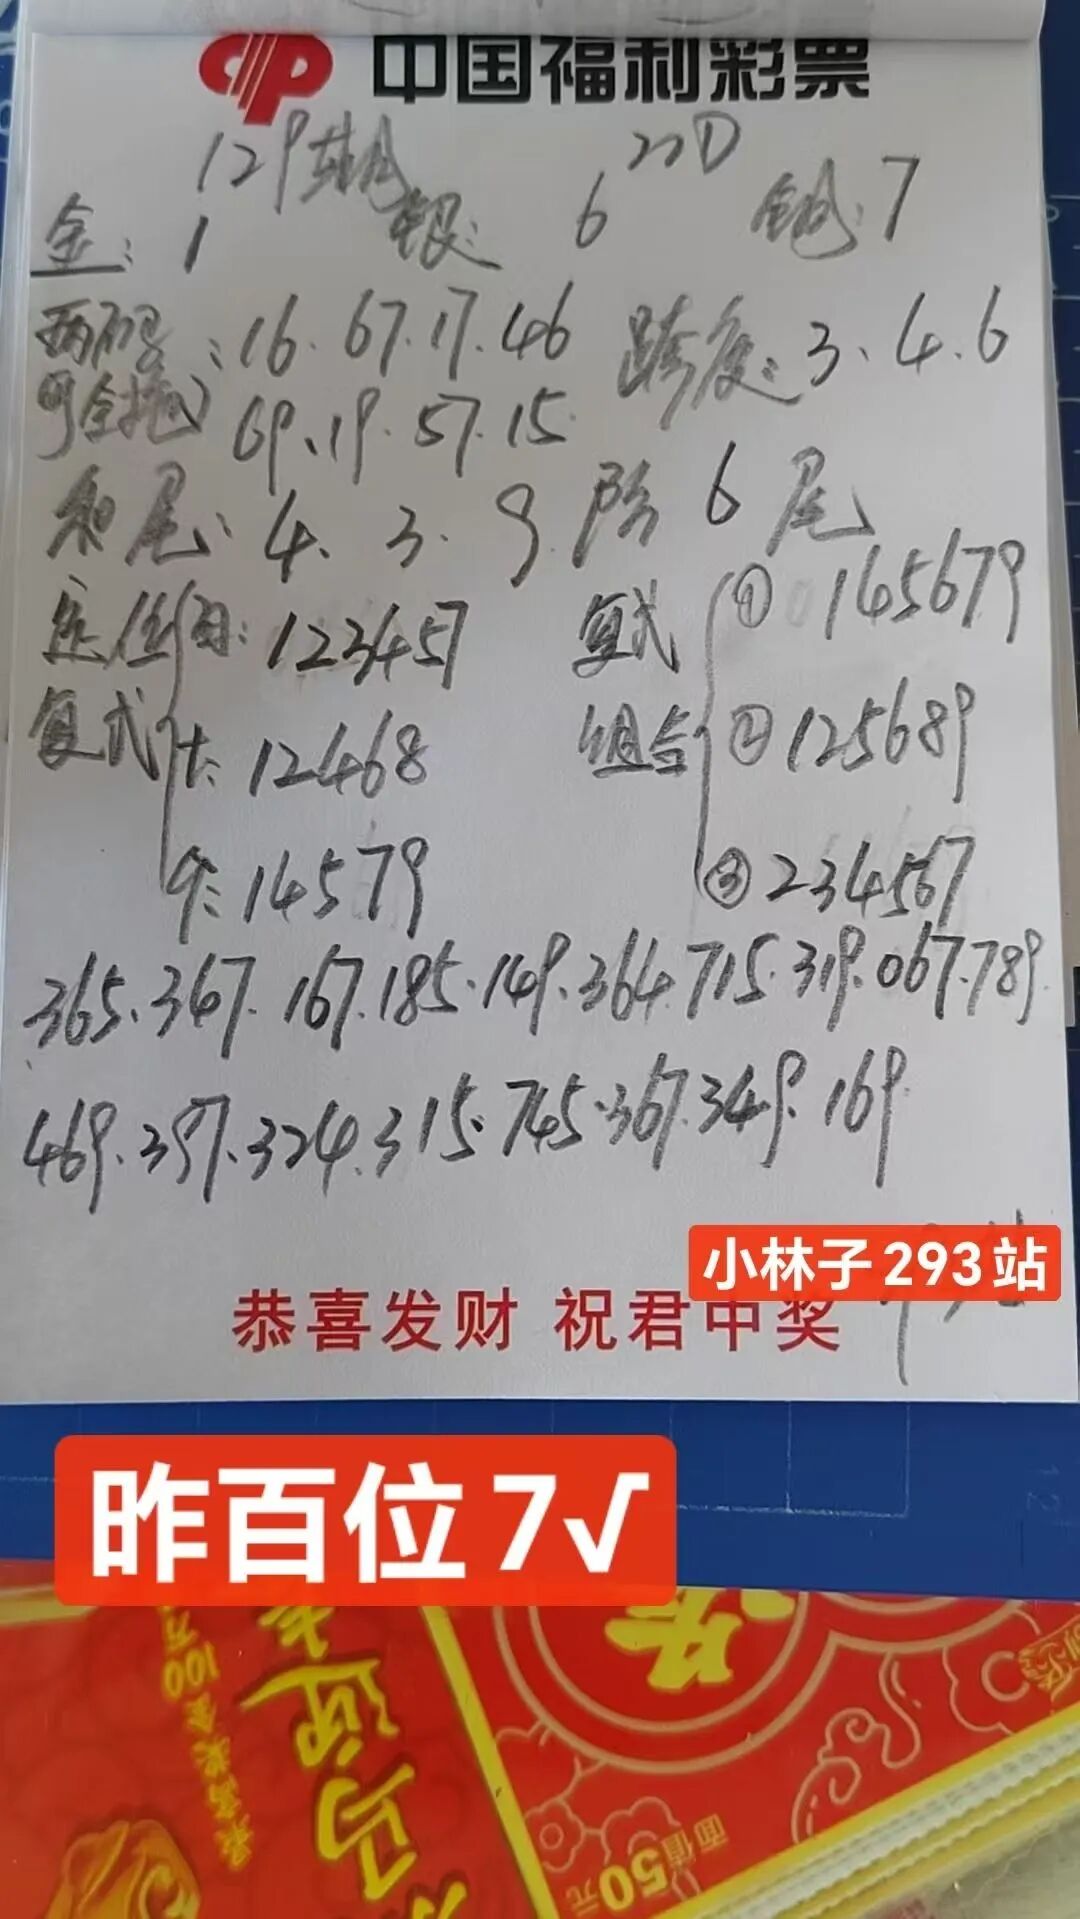 中国福利彩票
129期 22D
金：1 银：6 铜：7
两码：16.67.17.46 跨度：3.4.6
可全拖 69.19.57.15
和尾：4.3.9 防6尾
定位 百：123457 复式 ①145679
复式 十：12468 组合 ②125689
个：14579 ③234567
365.347.167.185.149.364.715.319.067.789
469.397.324.315.745.367.349.169
小林子293站
恭喜发财 祝君中奖
昨百位7√
最高奖金100万
面值50元